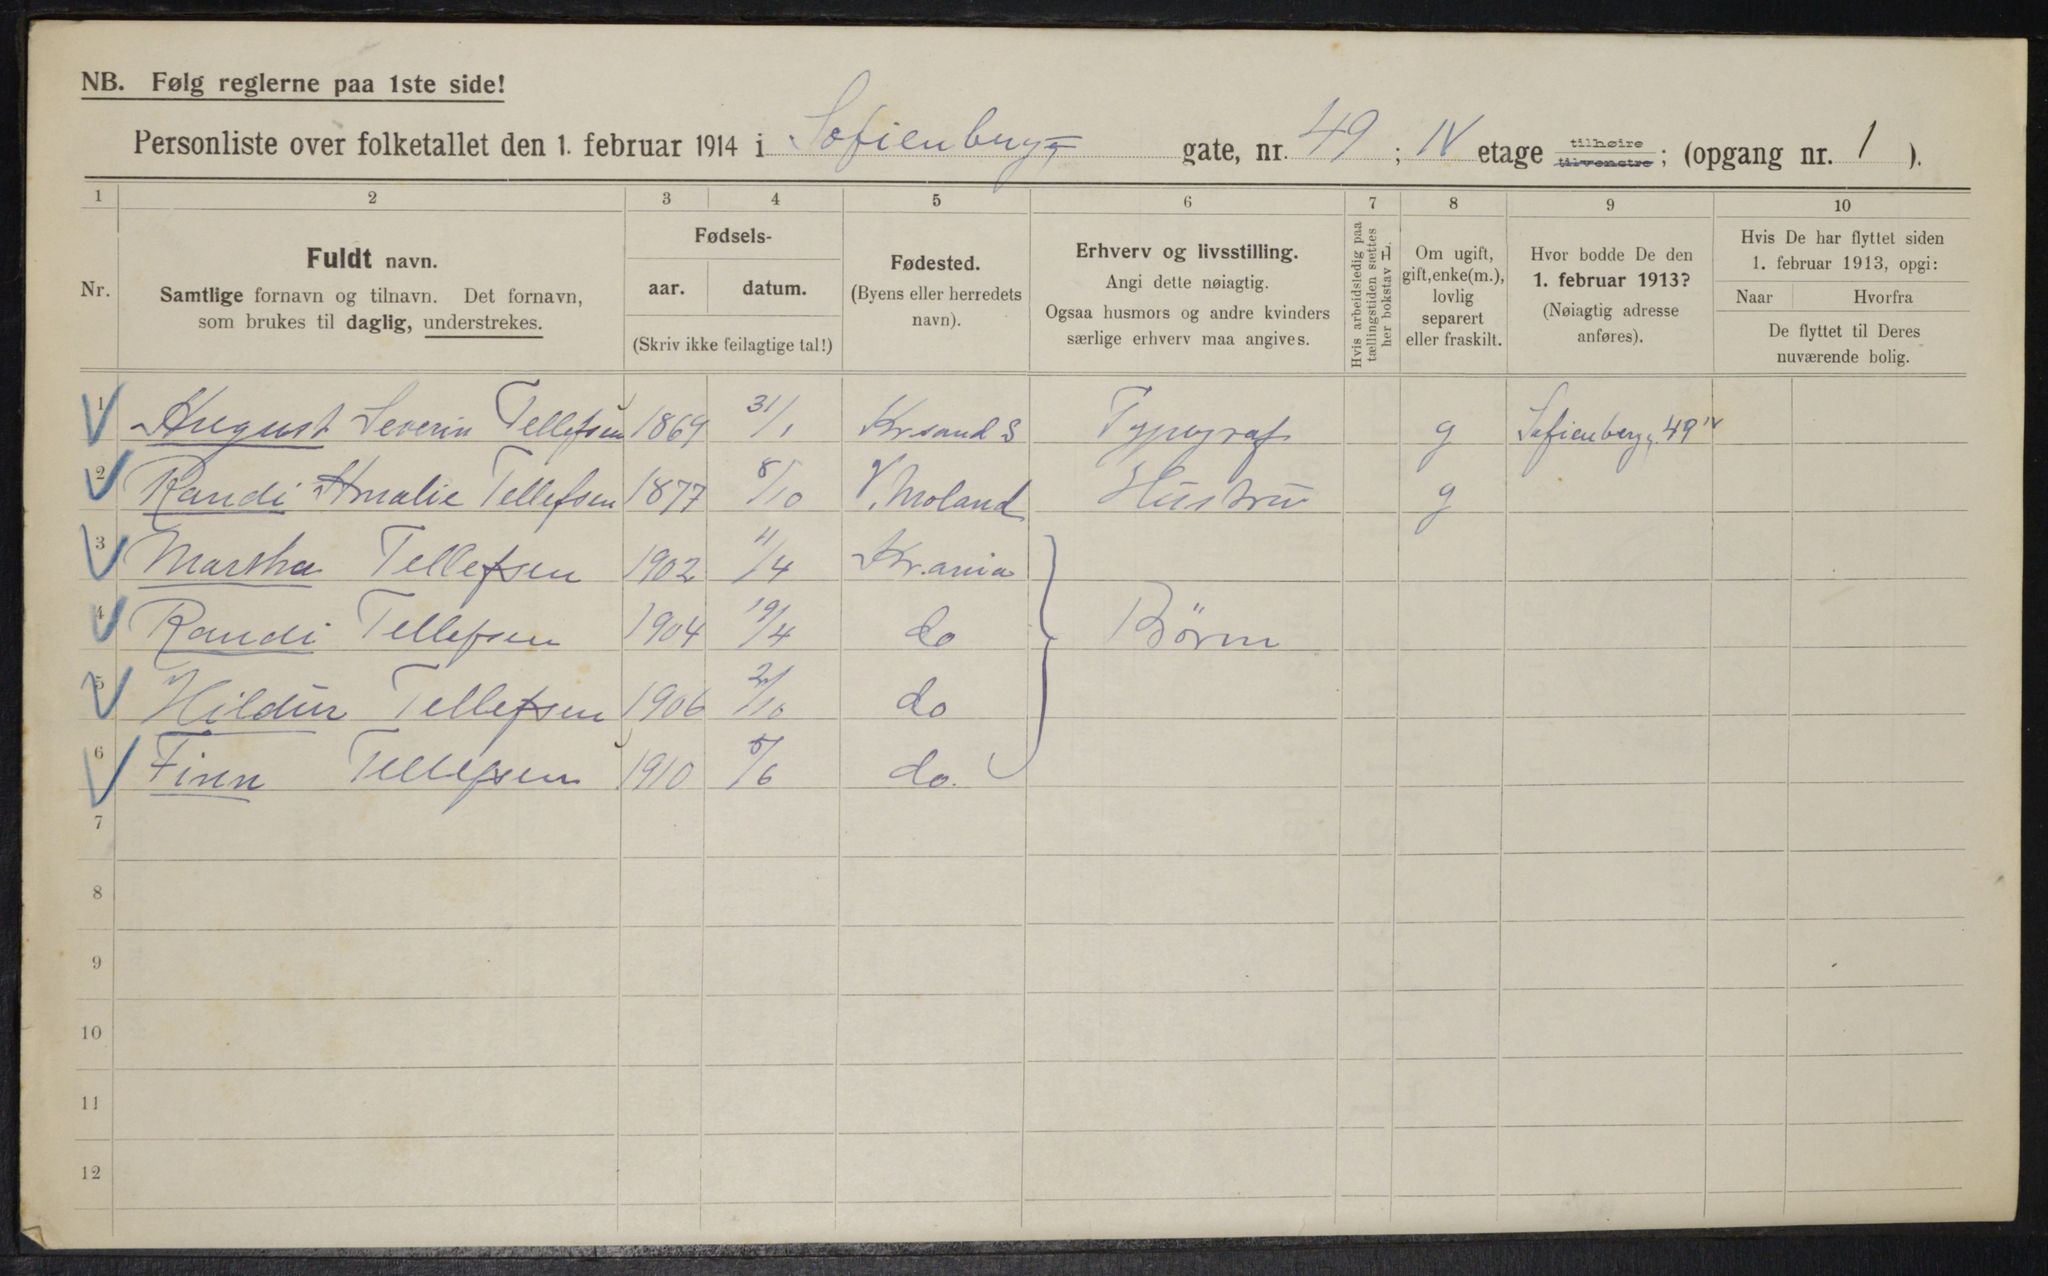 NB. Følg reglerne paa 1ste side!
Personliste over folketallet den 1. februar 1914 i Sofienberg gate, nr. 49 ; IV etage tilhøire tilvenstre ; (opgang nr. 1 ).
1 2 3 4 5 6 7 8 9 10
Nr.
Fuldt navn.
Samtlige fornavn og tilnavn. Det fornavn,
som brukes til daglig, understrekes.
Fødsels-
aar. datum.
(Skriv ikke feilagtige tal!)
Fødested.
(Byens eller herredets
navn).
Erhverv og livsstilling.
Angi dette nøiagtig.
Ogsaa husmors og andre kvinders
særlige erhverv maa angives.
Hvis arbeidsledig paa
tællingstiden sættes
her bokstav L.
Om ugift,
gift, enke(m.),
lovlig
separert
eller fraskilt.
Hvor bodde De den
1. februar 1913?
(Nøiagtig adresse
anføres).
Hvis De har flyttet siden
1. februar 1913, opgi:
Naar Hvorfra
De flyttet til Deres
nuværende bolig.
1 August Severin Tellefsen 1869 31/1 Kr.sand S Typograf g Sofienberg. 49 IV
2 Randi Amalie Tellefsen 1877 8/10 V. Moland Hustru g
3 Martha Tellefsen 1902 11/4 Kr.ania
4 Randi Tellefsen 1904 19/4 do Börn
5 Hildur Tellefsen 1906 /10 do
6 Finn Tellefsen 1910 5/6 do.
7
8
9
10
11
12